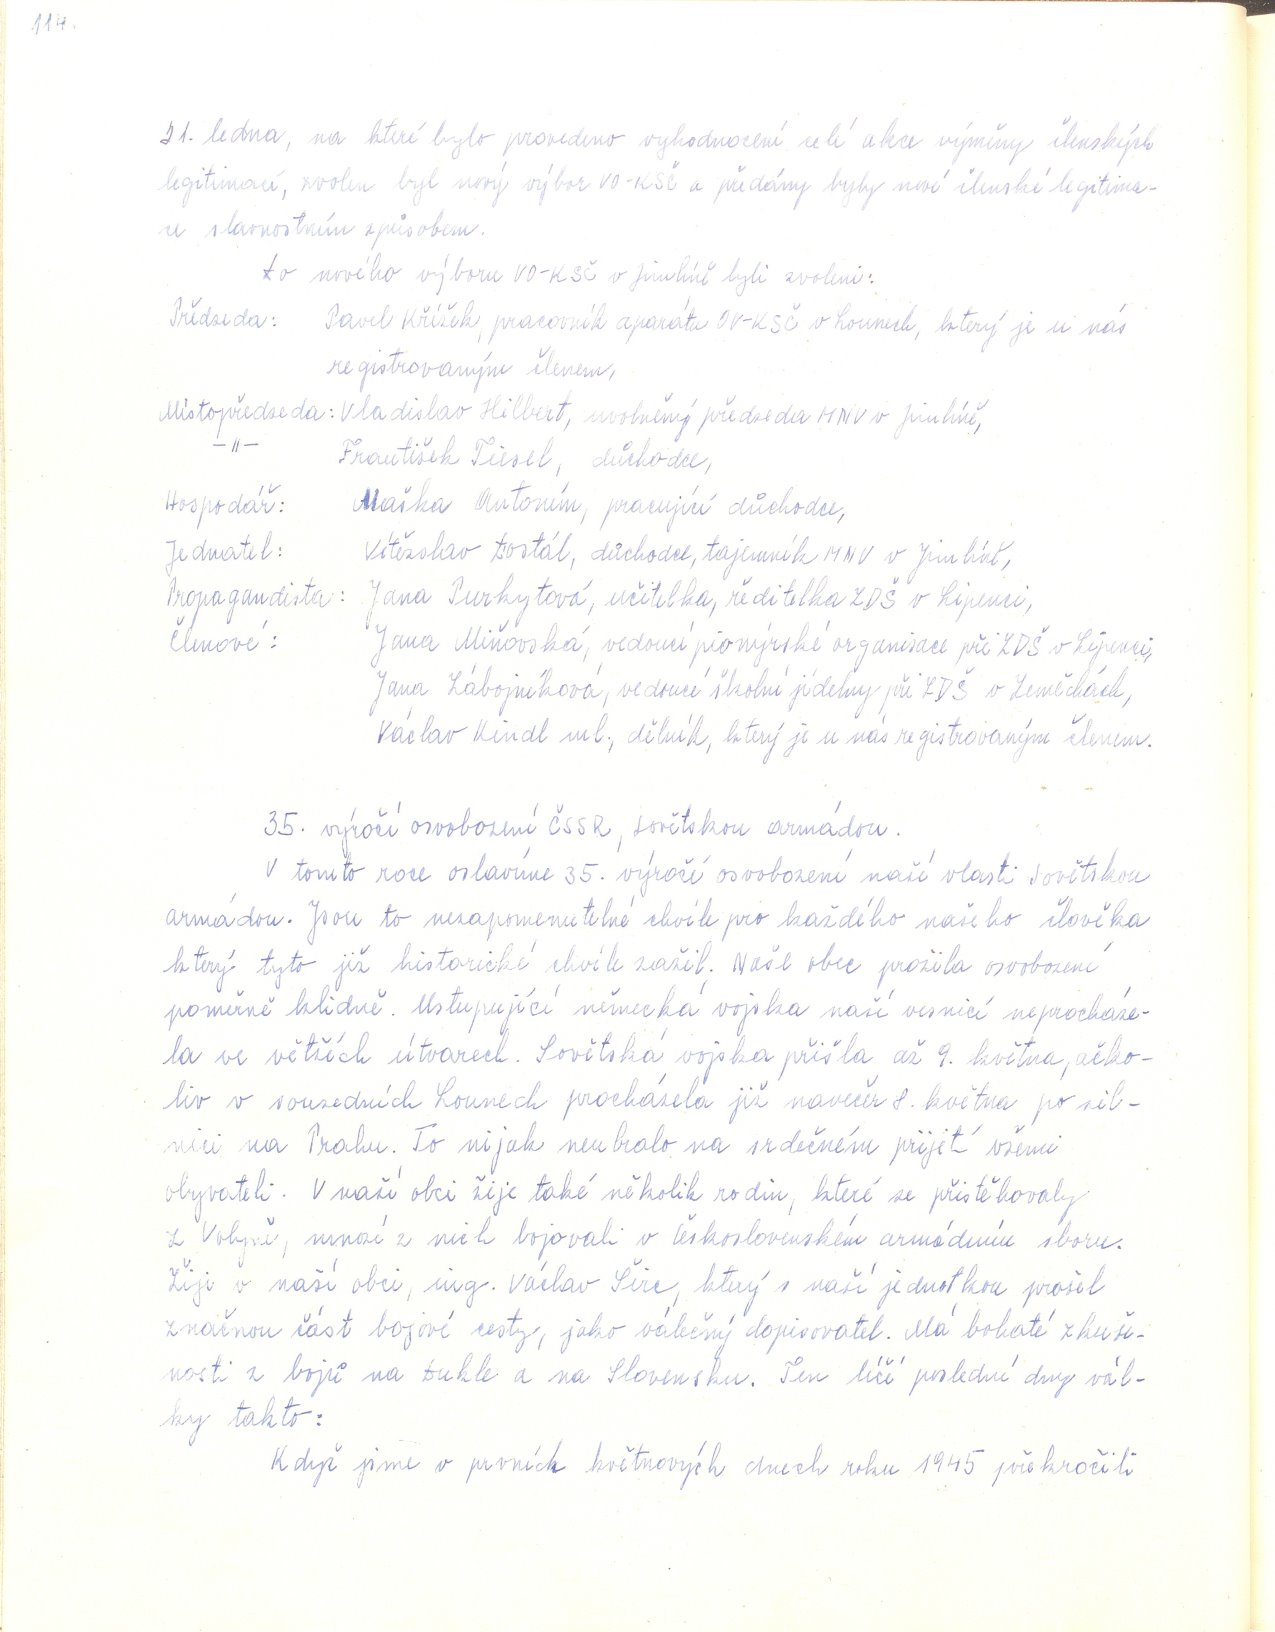 114.
21. ledna, na které bylo provedeno vyhodnocení celé akce výměny členských
legitimací, zvolen byl nový výbor VO-KSČ a předány byly nové členské legitima-
ce slavnostním způsobem.
Do nového výboru VO-KSČ v Jimlíně byli zvoleni:
Předseda: Pavel Křížek, pracovník aparátu OV-KSČ v Lounech, který je u nás
registrovaným členem,
Místopředseda: Vladislav Hilbert, uvolněný předseda MNV v Jimlíně,
—"— František Tiesel, důchodce,
Hospodář: Maška Antonín, pracující důchodce,
Jednatel: Vítězslav Dostál, důchodce, tajemník MNV v Jimlíně,
Propagandista: Jana Purkytová, učitelka, ředitelka ZDŠ v Lipenci,
Členové: Jana Miňovská, vedoucí pionýrské organisace při ZDŠ v Lipenci,
Jana Zábojníková, vedoucí školní jídelny při ZDŠ v Zeměchách,
Václav Kindl ml., dělník, který je u nás registrovaným členem.
35. výročí osvobození ČSSR, sovětskou armádou.
V tomto roce oslavíme 35. výročí osvobození naší vlasti Sovětskou
armádou. Jsou to nezapomenutelné chvíle pro každého našeho člověka
který tyto již historické chvíle zažil. Naše obec prožila osvobození
poměrně klidně. Ustupující německá vojska naší vesnicí neprocháze-
la ve větších útvarech. Sovětská vojska přišla až 9. května, ačko-
liv v sousedních Lounech procházela již navečer 8. května po sil-
nici na Prahu. To nijak neubralo na srdečném přijetí všemi
obyvateli. V naší obci žije také několik rodin, které se přistěhovaly
z Volyně, mnozí z nich bojovali v Československém armádním sboru.
Žije v naší obci, ing. Václav Širc, který s naší jednotkou prošel
značnou část bojové cesty, jako válečný dopisovatel. Má bohaté zkuše-
nosti z bojů na Dukle a na Slovensku. Ten líčí poslední dny vál-
ky takto:
Když jsme v prvních květnových dnech roku 1945 překročili